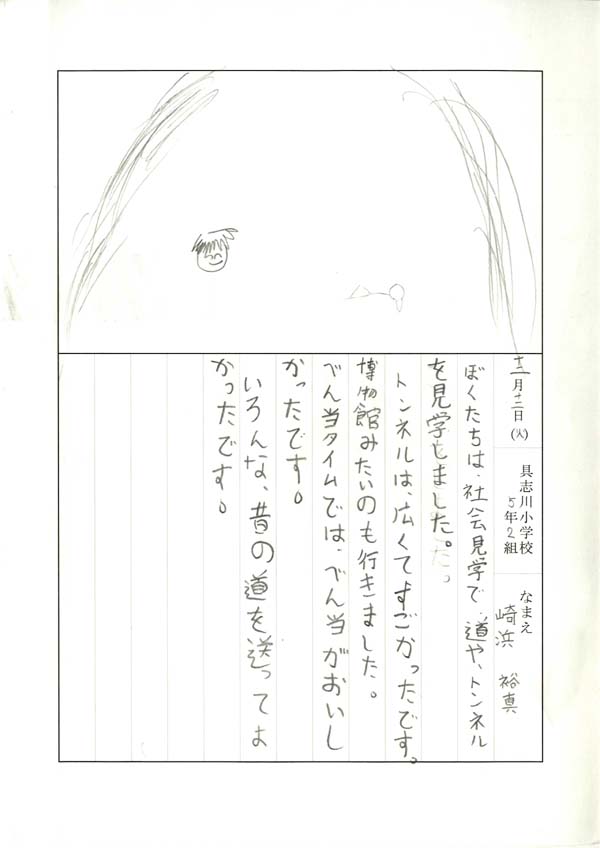 十二月十二日(火)
具志川小学校
5年2組
なまえ
崎浜 裕真
ぼくたちは、社会見学で、道や、トンネル
を見学しました。
トンネルは、広くてすごかったです。
博物館みたいのも行きました。
べん当タイムでは、べん当がおいし
かったです。
いろんな、昔の道を送ってよ
かったです。